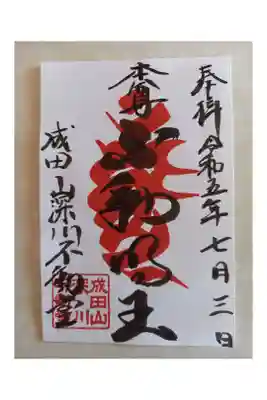 奉拝 令和五年七月三日
本尊
不動明王
成田山深川不動堂
成田山